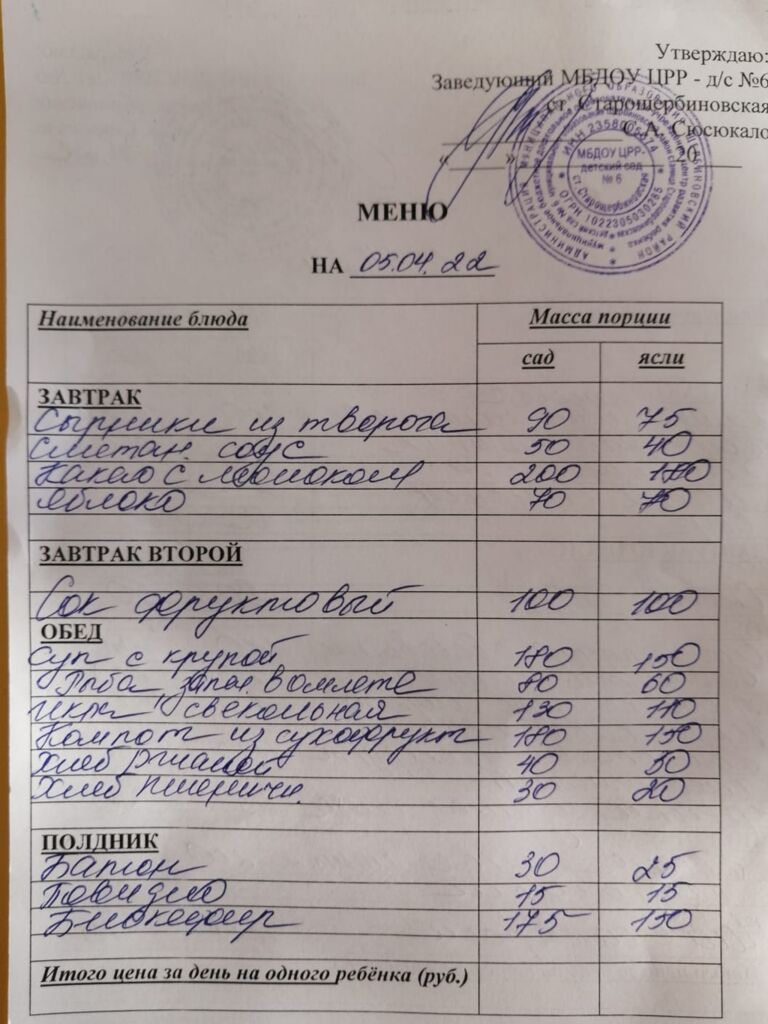 Утверждаю:
Заведующий МБДОУ ЦРР - д/с №6
ст. Старощербиновская
С.А. Сюсюкало
« » 20
ИНН 2358005074
МБДОУ ЦРР-
детский сад
№ 6
ст. Старощербиновская
ОГРН 1022305030265
МЕНЮ
НА 05.04.22
Наименование блюда Масса порции
сад ясли
ЗАВТРАК
Сырники из творога 90 75
Сметан. соус 50 40
Какао с молоком 200 180
Яблоко 70 70
ЗАВТРАК ВТОРОЙ
Сок фруктовый 100 100
ОБЕД
Суп с крупой 180 150
Рыба запеч. в омлете 80 60
Икра свекольная 130 110
Компот из сухофрукт 180 150
Хлеб ржаной 40 50
Хлеб пшеничн. 30 20
ПОЛДНИК
Батон 30 25
Повидло 15 15
Биокефир 175 150
Итого цена за день на одного ребёнка (руб.)